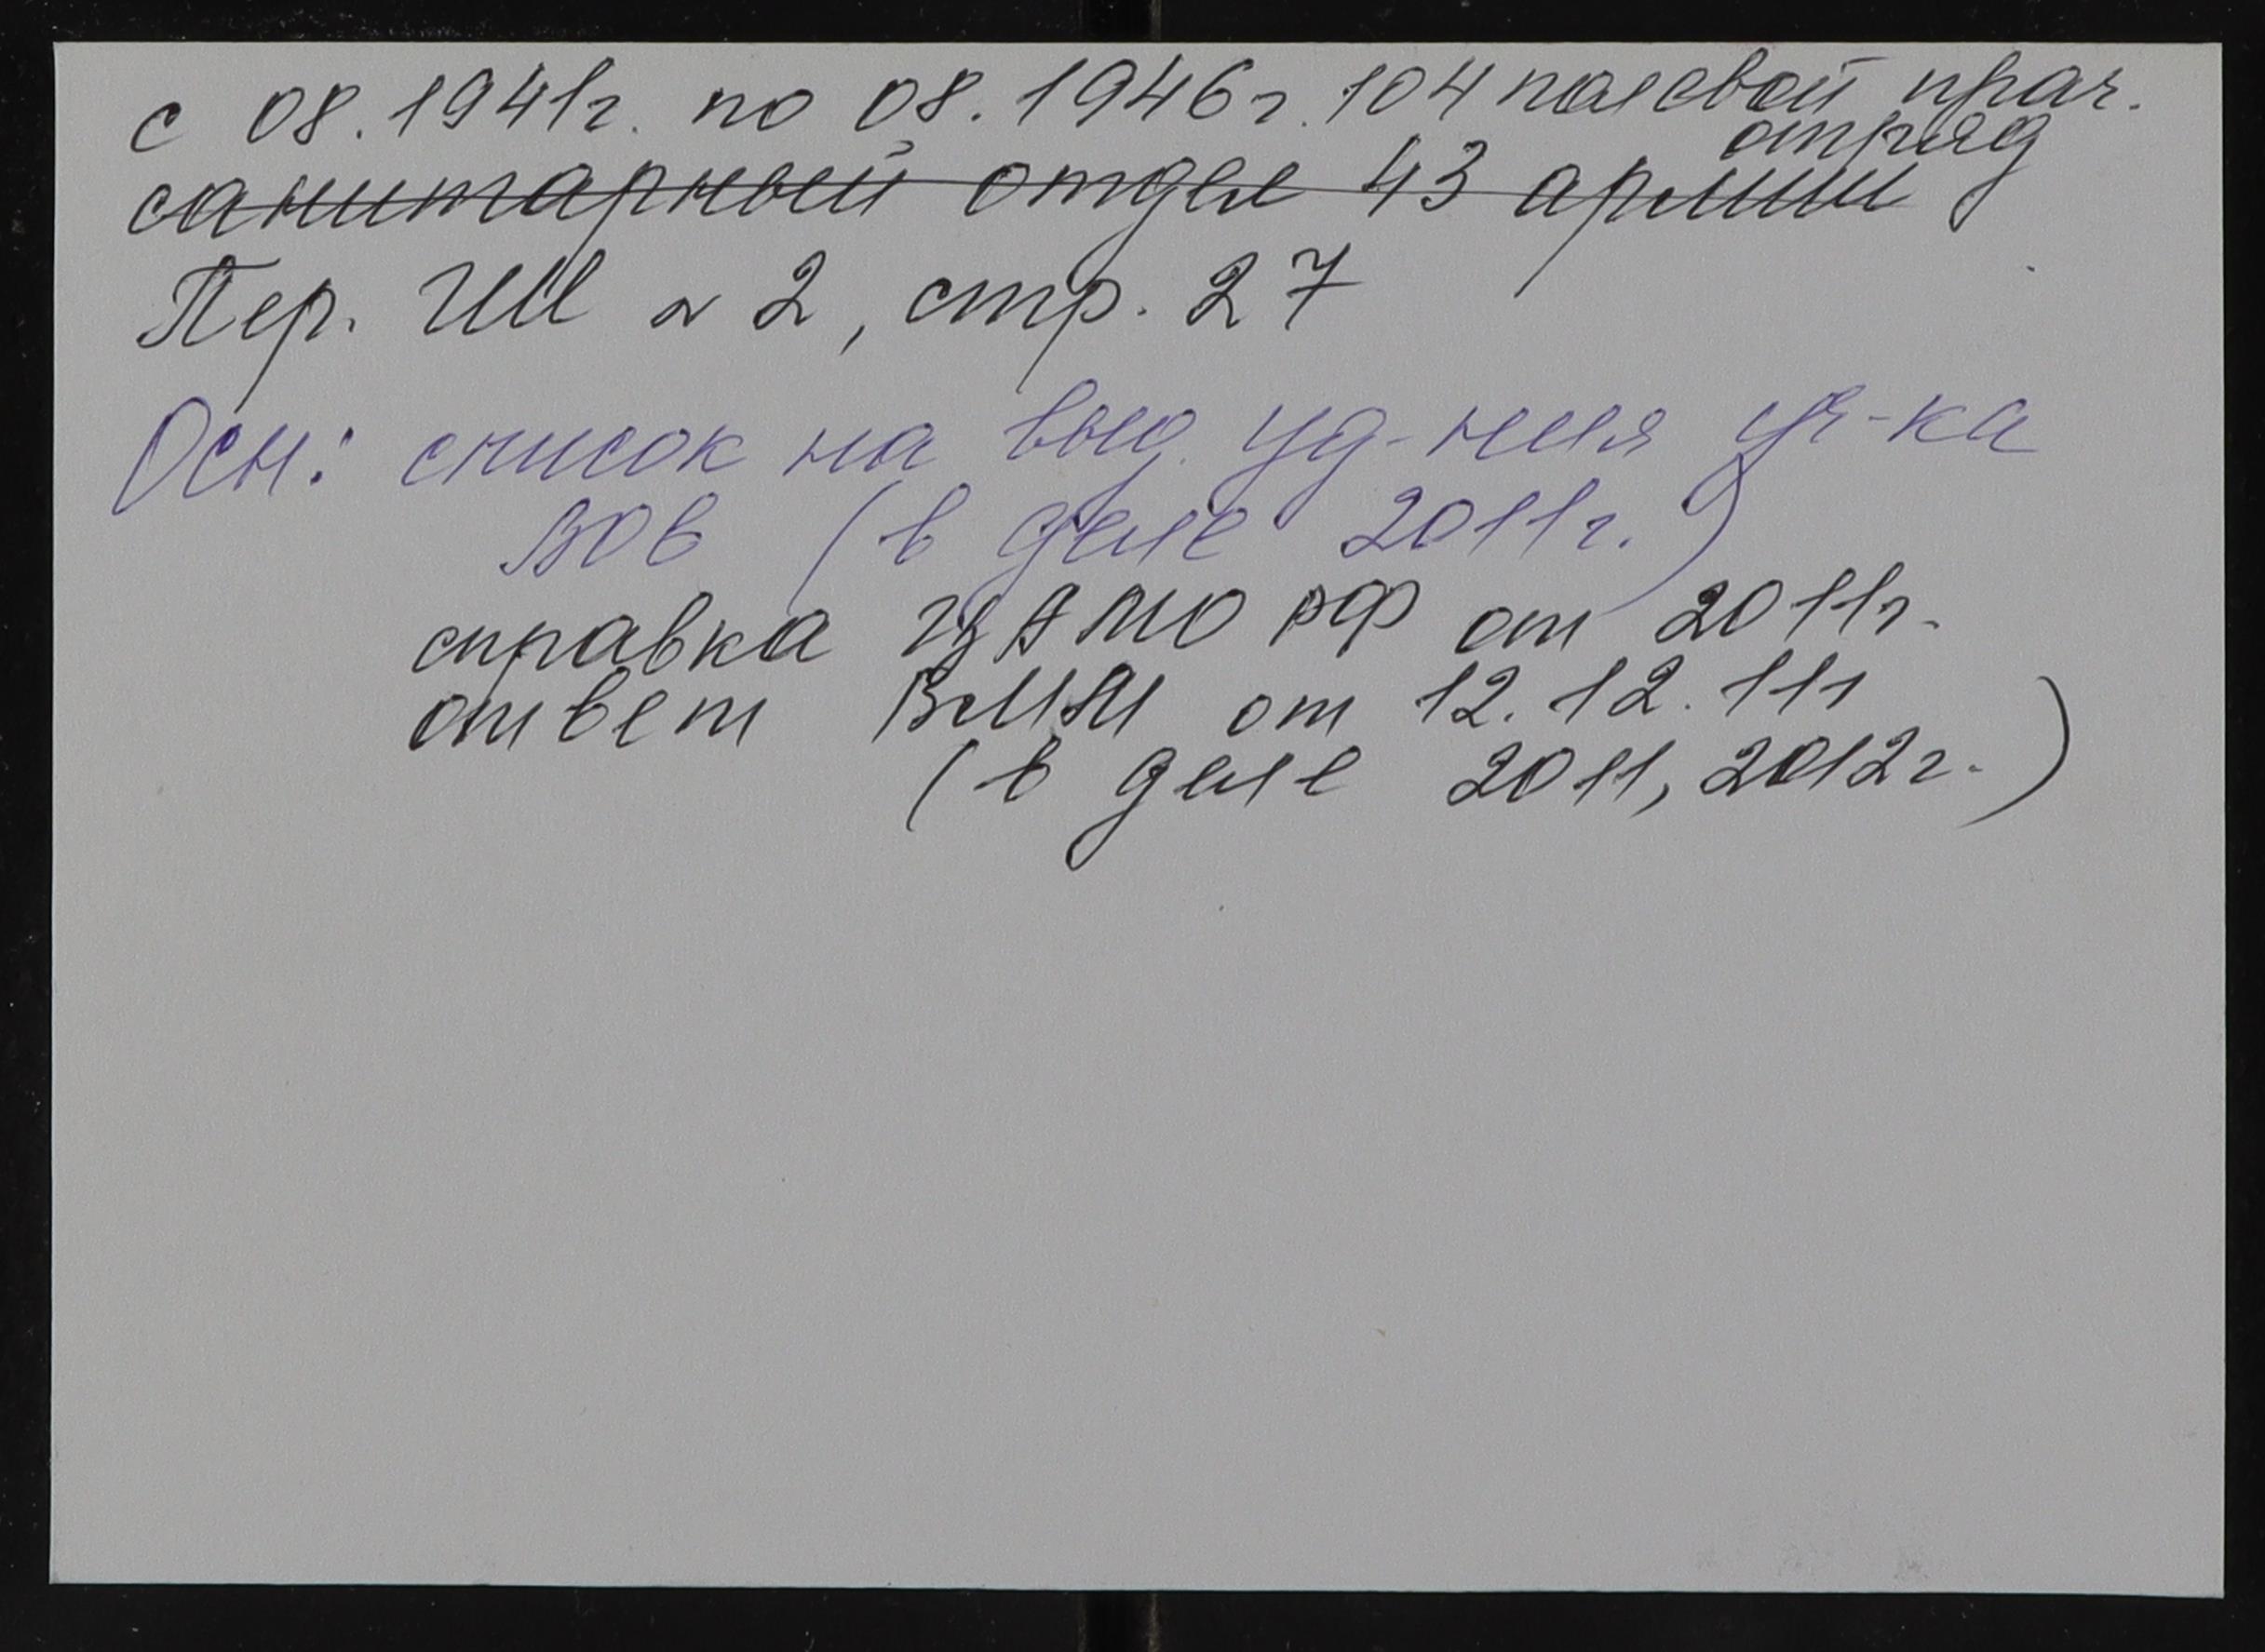 с 08.1941г. по 08.1946г. 104 полевой прач.
отряд
санитарный отдел 43 армии
Пер. ГШ № 2, стр. 27
Осн: список на выд. уд-ния уч-ка
ВОВ (в деле 2011г.)
справка ЦАМО РФ от 2011г.
ответ от 12.12.11г
(в деле 2011, 2012г.)